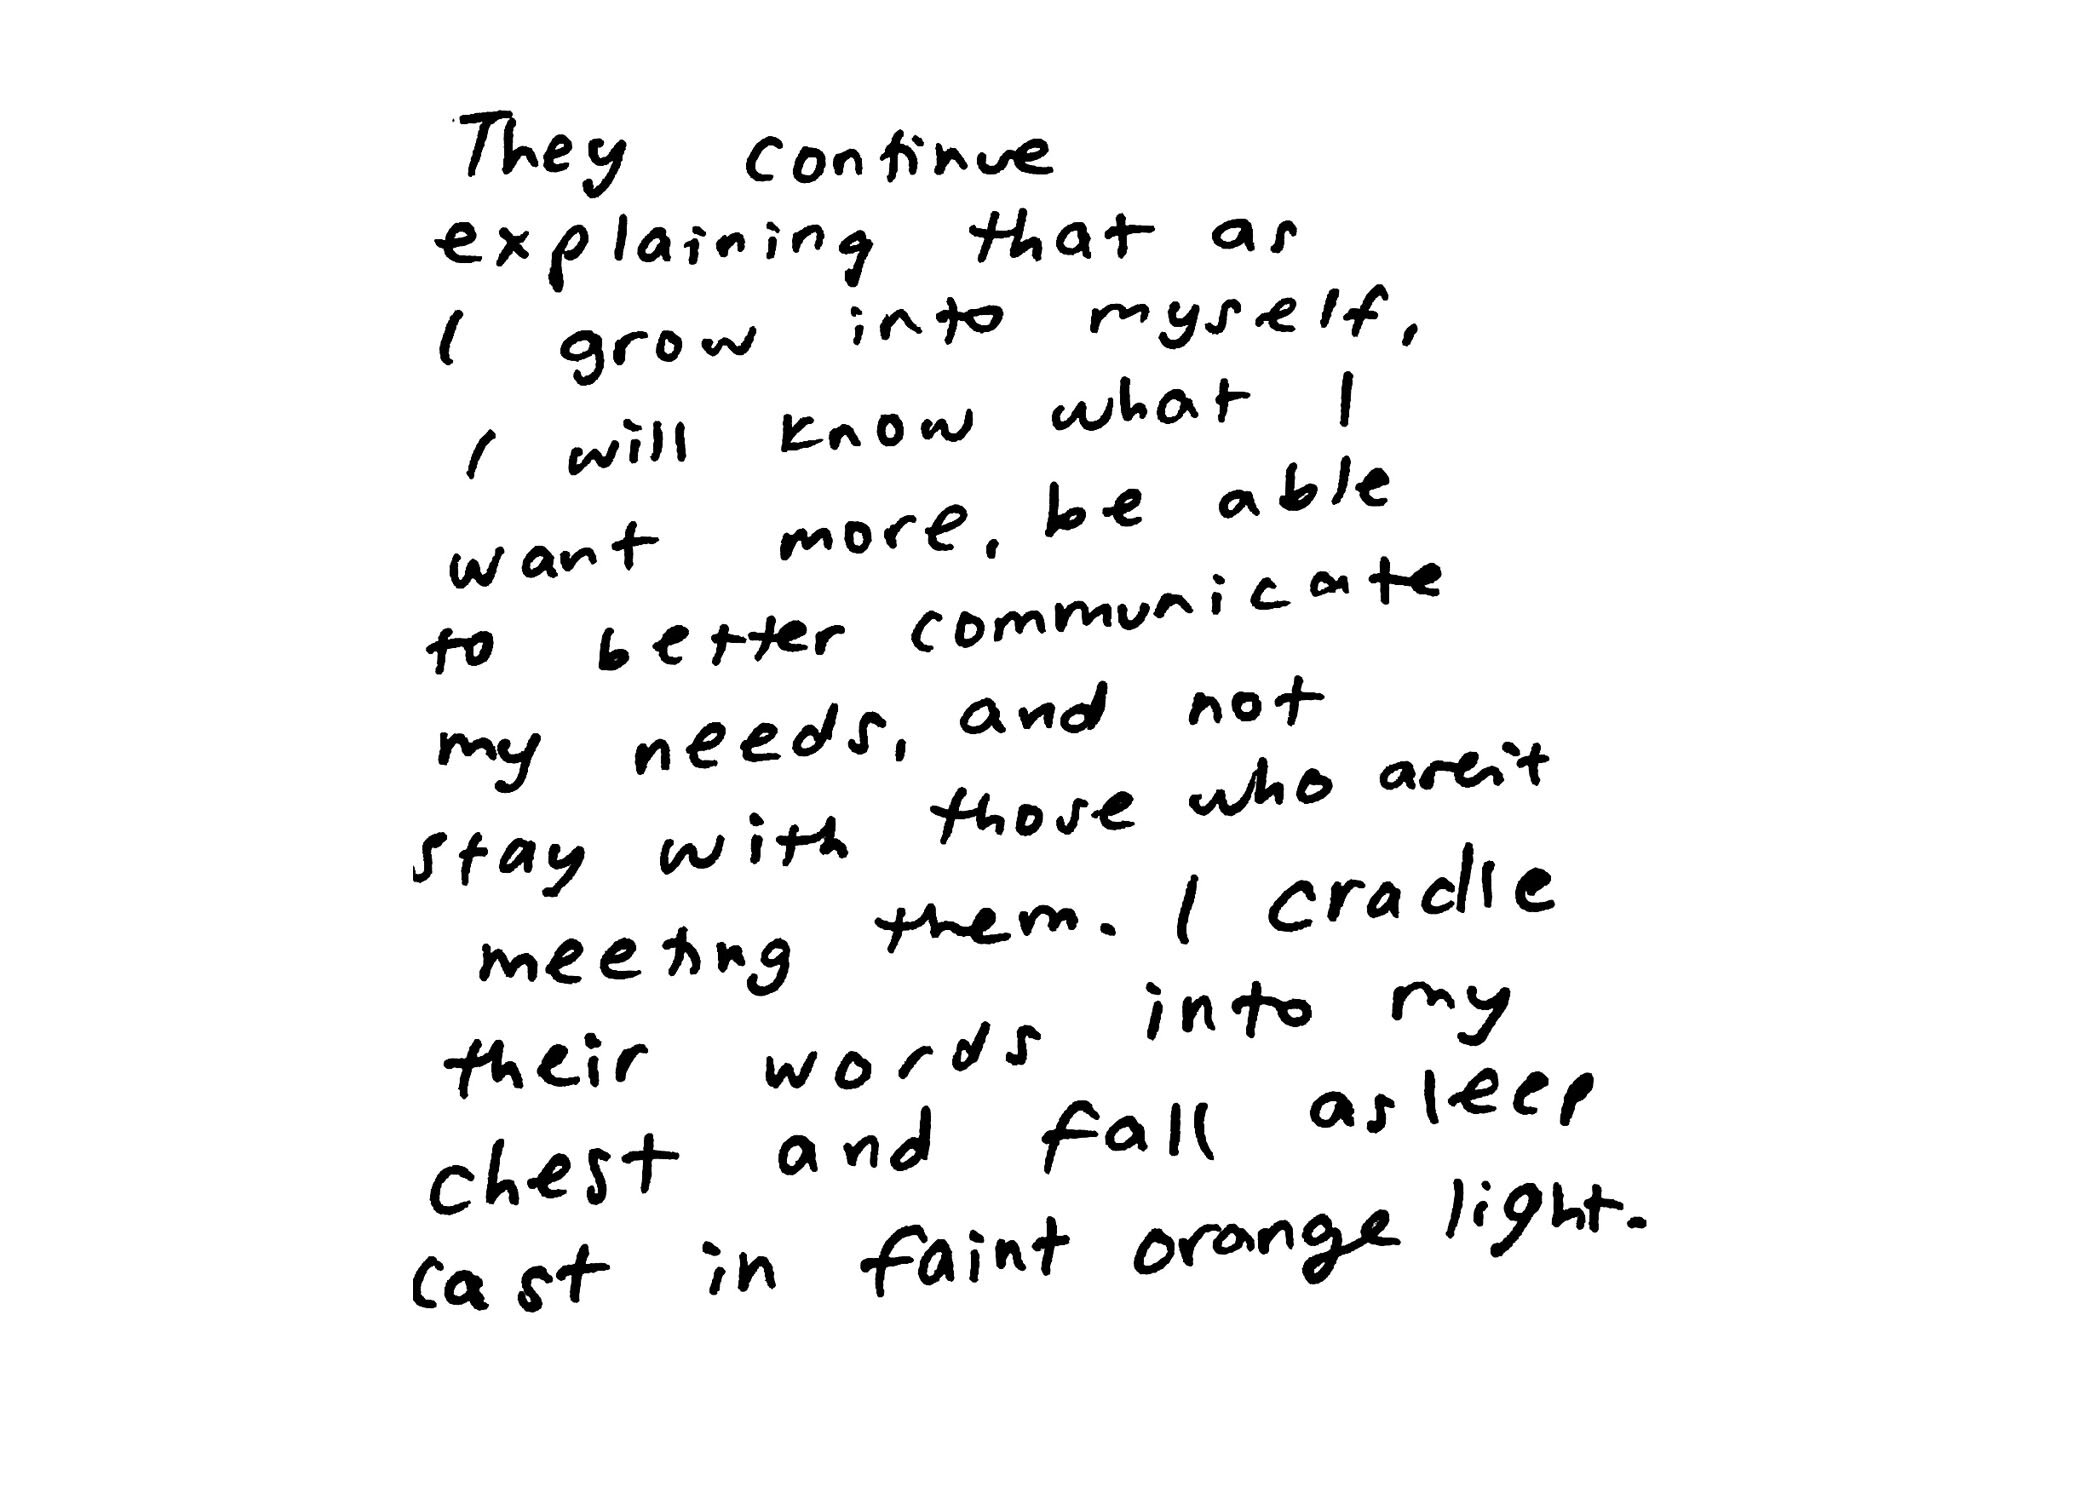 They continue
explaining that as
I grow into myself,
I will know what I
want more, be able
to better communicate
my needs, and not
stay with those who aren't
meeting them. I cradle
their words into my
chest and fall asleep
cast in faint orange light.